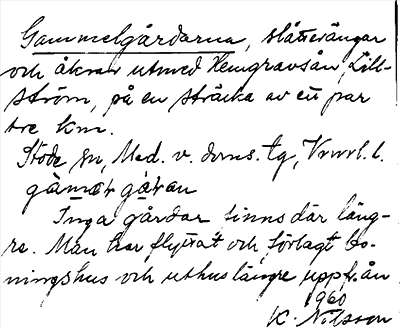 Gammelgårdarna, slåtterängar
och åkrar utmed Hemgravsån, Lill-
ström, på en sträcka av ett par
tre km.
Stöde sn, Med. v. doms. tg, Vnrrl. l.
Inga gårdar finns där läng-
re. Man har flyttat och förlagt bo-
ningshus och uthus längre upp från
1960
K. Nilsson